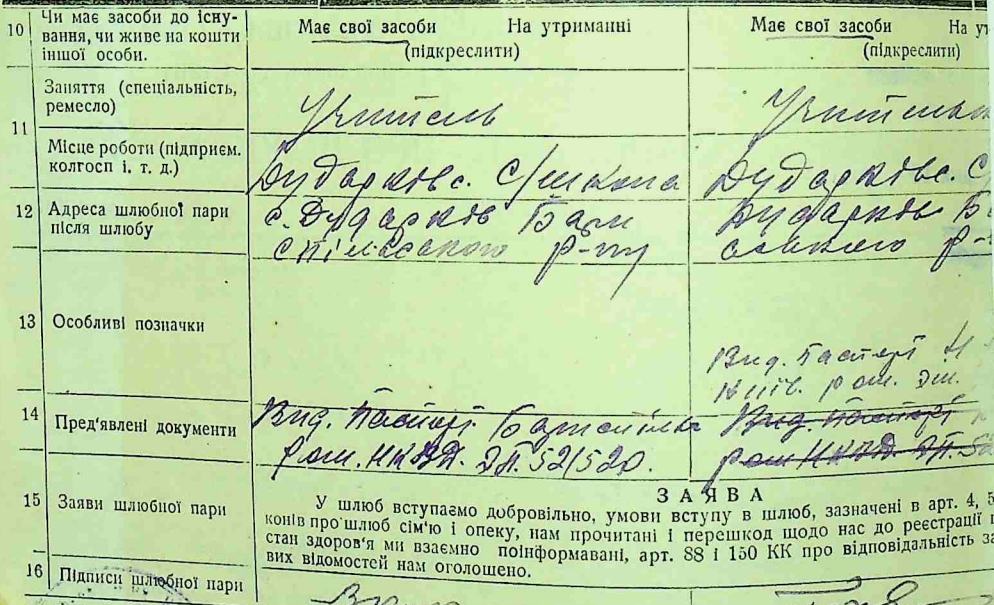 10 Чи має засоби до існу-
вання, чи живе на кошти
іншої особи.
Має свої засоби На утриманні
(підкреслити)
Має свої засоби На ут
(підкреслити)
11 Заняття (спеціальність,
ремесло)
Учитель
Учителька
Місце роботи (підприєм.
колгосп і. т. д.)
Дударківс. С/школа
Дударківс. С
12 Адреса шлюбної пари
після шлюбу
с. Дударків Бари
спільського р-ну
Дударків Б
р-
13 Особливі позначки
Вид. Паспорт
14 Пред'явлені документи
Вид. Паспорт
НКВД. ЭП. 52/520.
Вид. Паспорт
НКВД. ЭП. 52
15 Заяви шлюбної пари
ЗАЯВА
У шлюб вступаємо добровільно, умови вступу в шлюб, зазначені в арт. 4, 5
конів про шлюб сім'ю і опеку, нам прочитані і перешкод щодо нас до реєстрації
стан здоров'я ми взаємно поінформавані, арт. 88 і 150 КК про відповідальність за
вих відомостей нам оголошено.
16 Підписи шлюбної пари